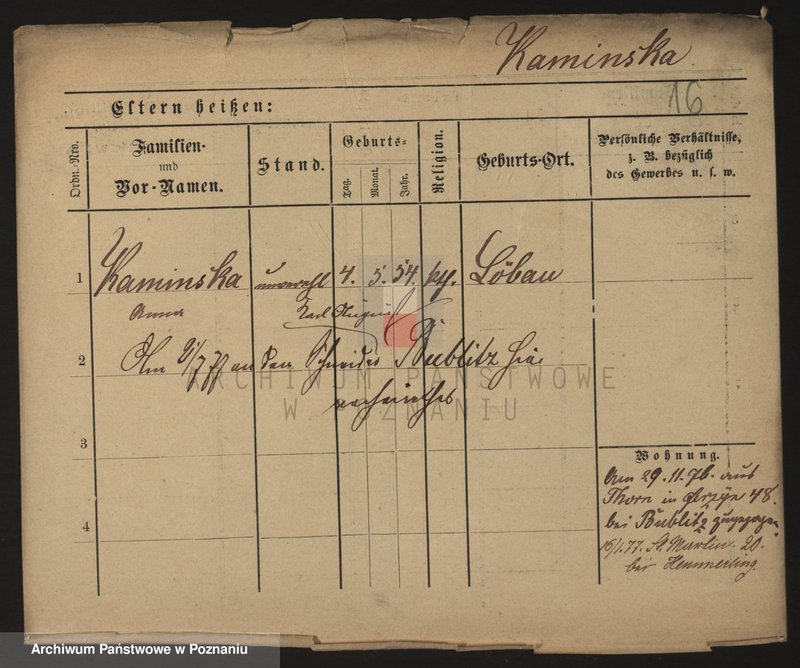 Kaminska
16
Eltern heißen:
Ordn.-Nro.
Familien-
und
Vor-Namen.
Stand.
Geburts-
Tag.
Monat.
Jahr.
Religion.
Geburts-Ort.
Persönliche Verhältnisse,
z. B. bezüglich
des Gewerbes u. s. w.
1 Kaminska unverehl 4. 5. 54. kth. Löbau
Anna
Karl August
2 Am 9/7 77 an den Schneider Bublitz hier
verheirathet
3
4
Wohnung.
Am 29.11.76. aus
Thorn in 48.
bei Bublitz zugezogen.
15/1.77. St. Martin. 20.
bei Hemmerling.
ARCHIWUM PAŃSTWOWE
W POZNANIU
Archiwum Państwowe w Poznaniu